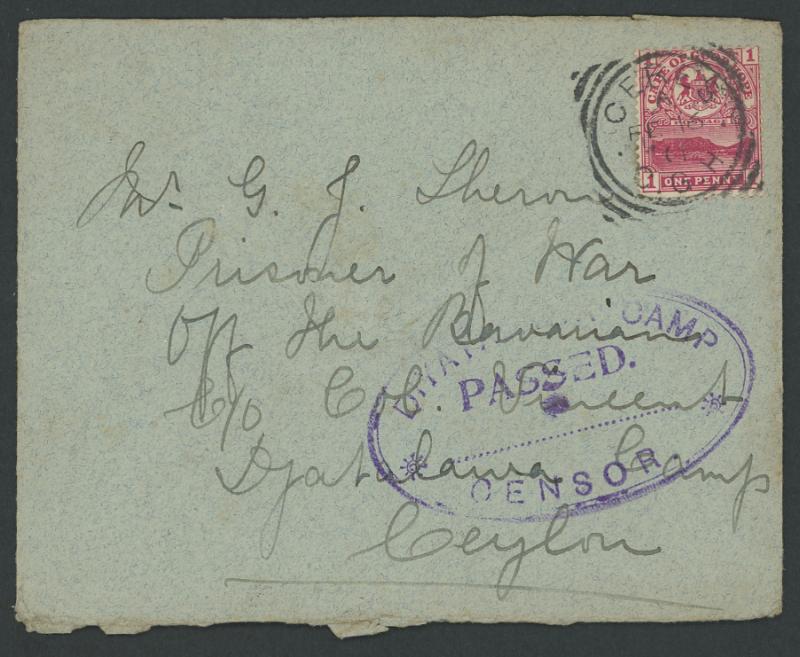 CAPE OF GOOD HOPE
1
POSTAGE
1 ONE PENNY
Mr. G. J. Theron
Prisoner of War
Off the Bavarian
C/o Col. Vincent
Djatalawa Camp
Ceylon
CAMP
PASSED.
CENSOR